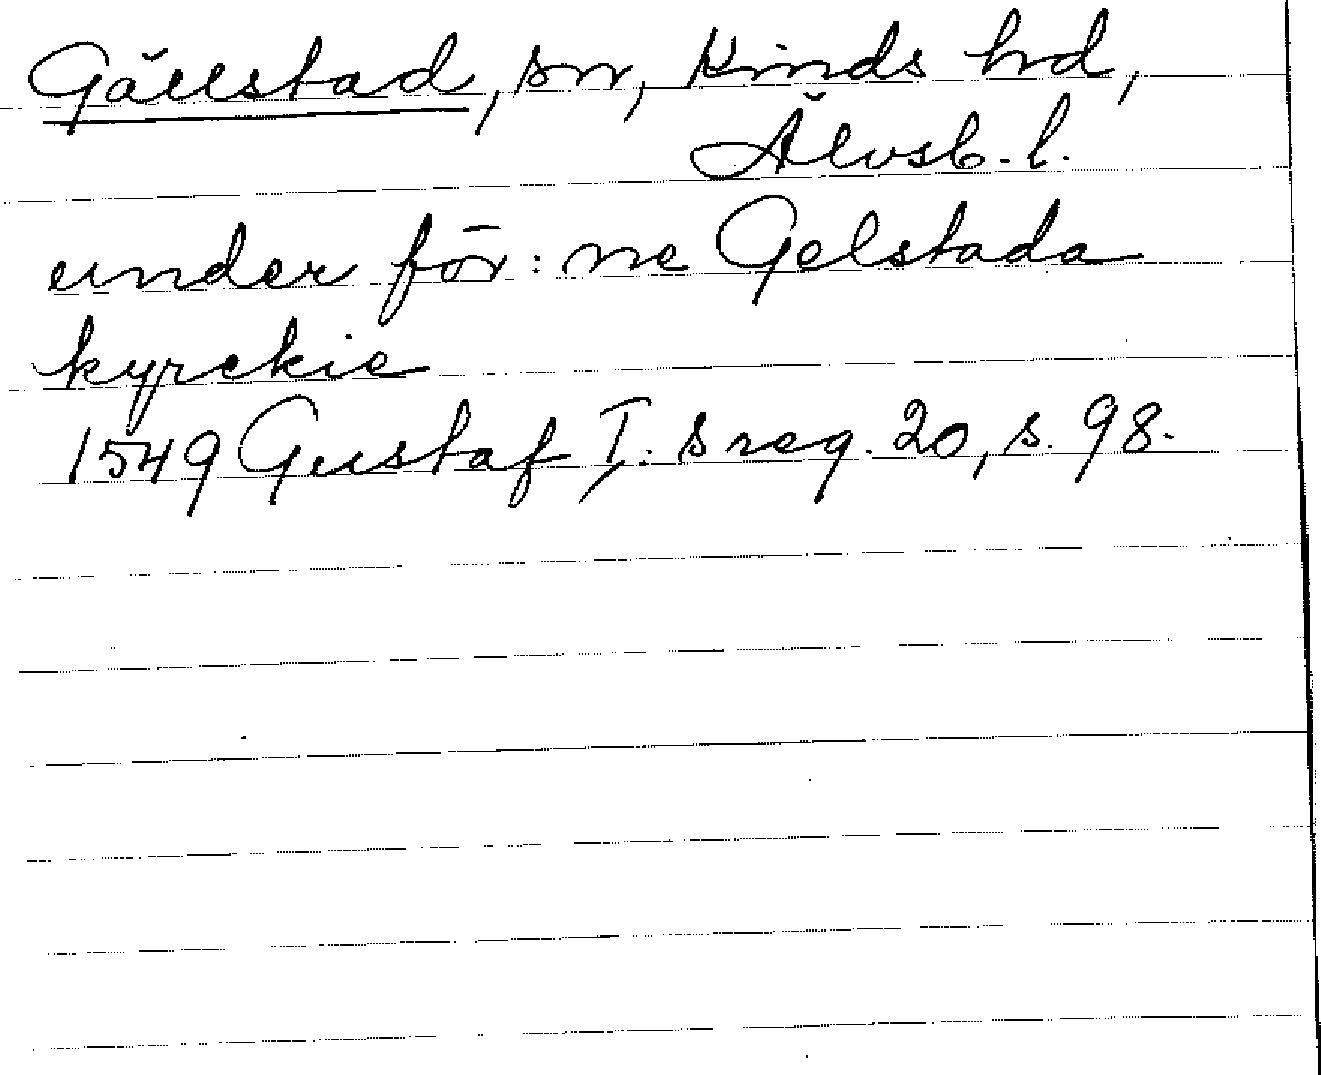 Gällstad, sn, Kinds hd,
Älvsb. l.
under för: ne Gelstada
kyrckie
1549 Gustaf I: s reg. 20, s. 98.